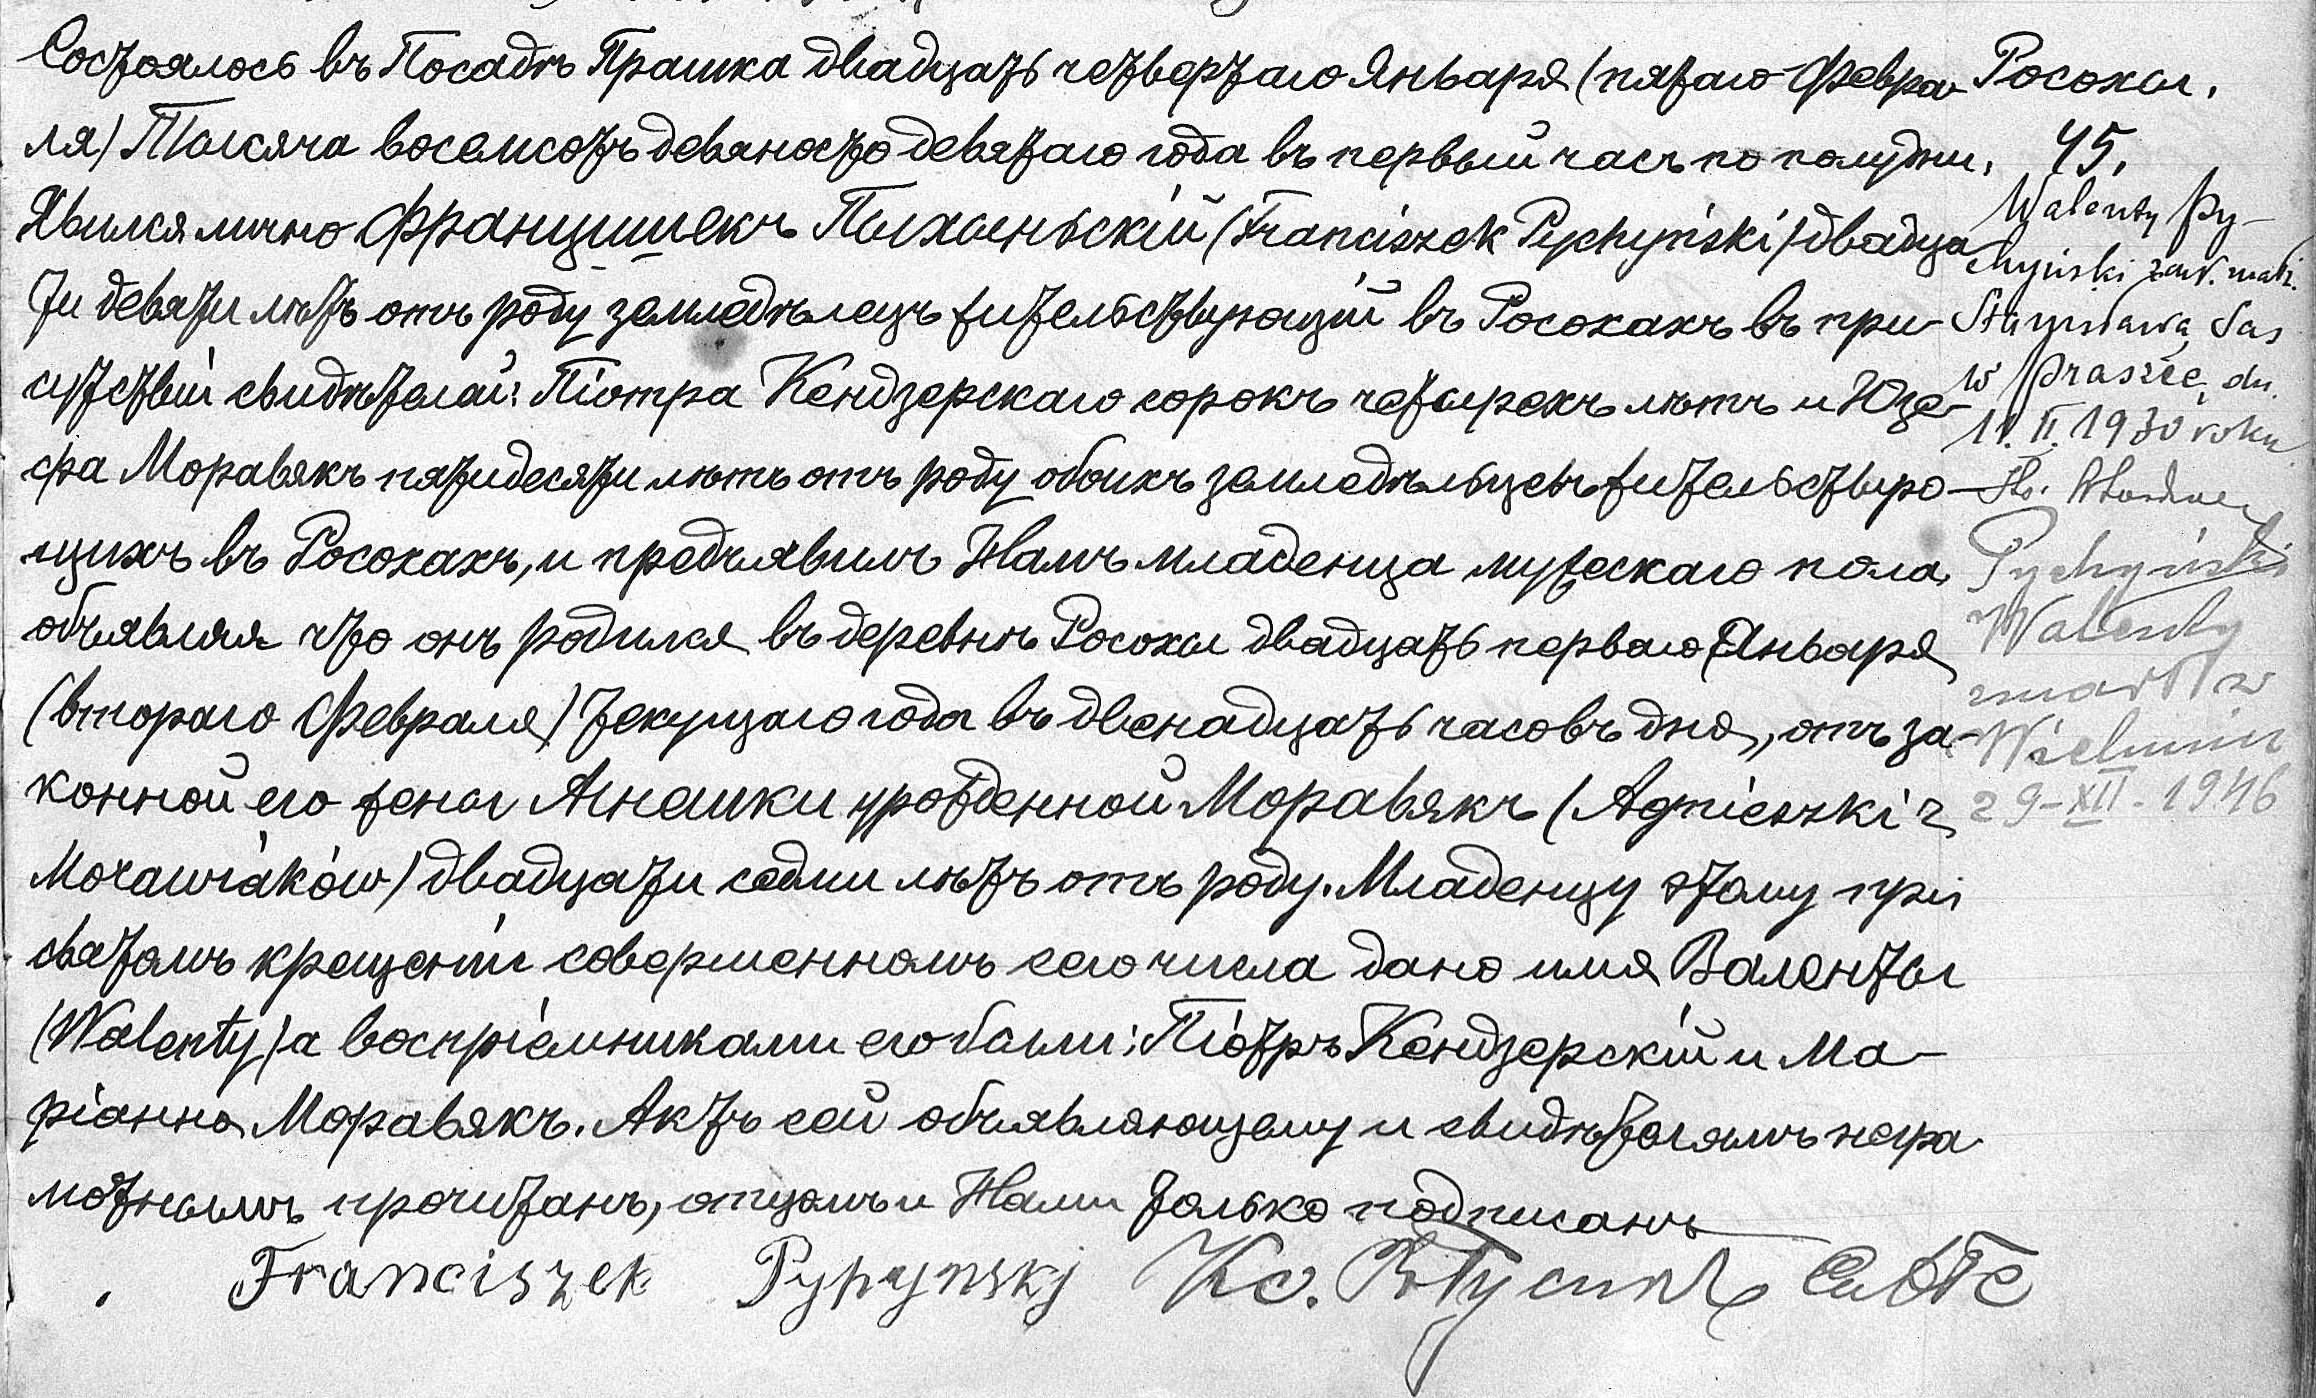 Состоялось въ Посадѣ Прашка двадцать четвертаго Января (пятаго Февра
ля) Тысяча восемсотъ девяносто девятаго года въ первый часъ по полудни.
Явился лично Францишекъ Пыхыньскій (Franciszek Pychyński) двадца
ти девяти лѣтъ отъ роду земледѣлецъ жительствующій въ Росохахъ въ при-
сутствіи свидѣтелей: Піотра Кендзерскаго сорокъ четырехъ лѣтъ и Юзе-
фа Моравякъ пятидесяти лѣтъ отъ роду обоихъ земледѣльцевъ жительствую-
щихъ въ Росохахъ, и предъявилъ Намъ младенца мужескаго пола
объявляя что онъ родился въ деревнѣ Росохы двадцать перваго Января
(втораго Февраля) текущаго года въ двенадцать часовъ дня, отъ за-
конной его жены Агнешки урожденной Моравякъ (Agnieszki z
Morawiaków) двадцати седми лѣтъ отъ роду. Младенцу этому при
святомъ крещеніи совершенномъ сего числа дано имя Валенты
(Walenty) а воспріемниками его были: Піотръ Кендзерскій и Ма-
ріанна Моравякъ. Актъ сей объявляющему и свидѣтелямъ негра
мотнымъ прочитанъ, отцомъ и Нами только подписанъ
Franciszek Pypynskj Кс.
Росохы.
45.
Walenty Py-
chyński zaw. mał.
Stanisława Sas
w Praszce dn.
11. II. 1930 roku
Ks.
Pychyński
Walenty
zmarł w
Wieluniu
29-XII-1946